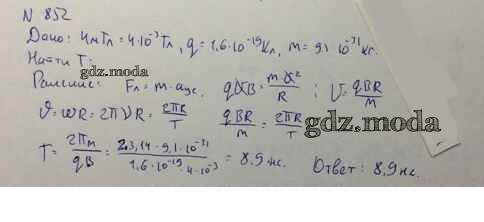 N 852
Дано: 4мТл = 4·10⁻³Тл, q = 1,6·10⁻¹⁹Кл, m = 9,1 10⁻³¹кг.
Найти T:
gdz.moda
Решение: Fл = m·aцс, qϑB = mϑ²/R ; U = qBR/m
ϑ = ωR = 2πνR = 2πR/T qBR/m = 2πR/T
gdz.moda
T = 2πm/qB = 2·3,14·9,1·10⁻³¹/1,6·10⁻¹⁹·4·10⁻³ = 8,9 нс. Ответ: 8,9 нс.